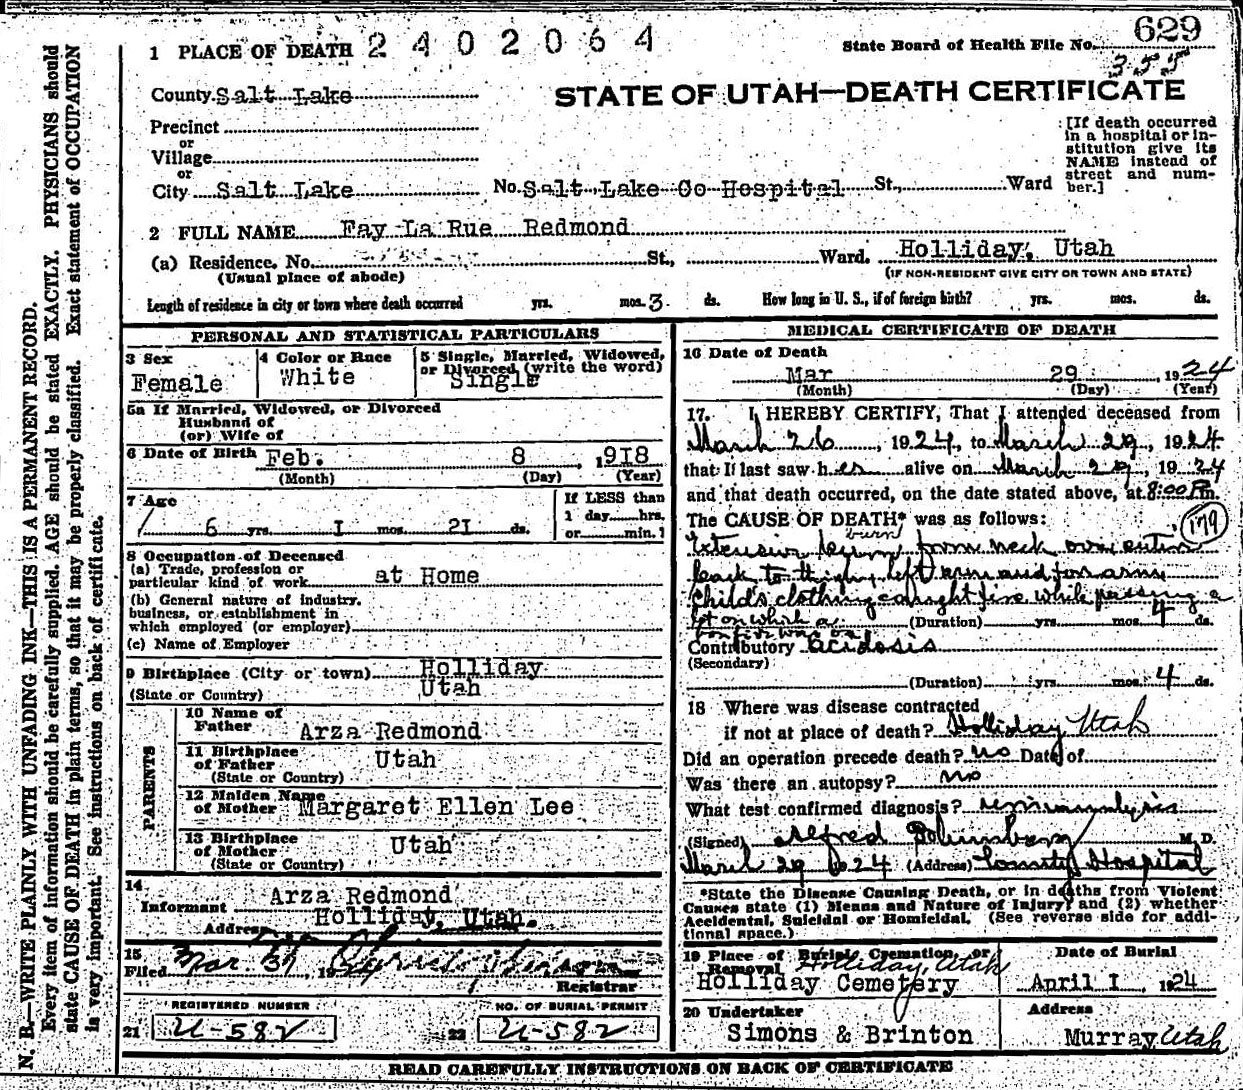 2402064
629
1 PLACE OF DEATH
State Board of Health File No.
355
County Salt Lake
STATE OF UTAH—DEATH CERTIFICATE
Precinct
or
Village
or
City Salt Lake No. Salt Lake Co Hospital St., Ward
[If death occurred
in a hospital or in-
stitution give its
NAME instead of
street and num-
ber.]
2 FULL NAME Fay La Rue Redmond
(a) Residence. No. St., Ward. Holliday, Utah
(Usual place of abode)
(IF NON-RESIDENT GIVE CITY OR TOWN AND STATE)
Length of residence in city or town where death occurred yrs. mos. 3 ds. How long in U. S., if of foreign birth? yrs. mos. ds.
PERSONAL AND STATISTICAL PARTICULARS
3 Sex
Female
4 Color or Race
White
5 Single, Married, Widowed,
or Divorced (write the word)
Single
5a If Married, Widowed, or Divorced
Husband of
(or) Wife of
6 Date of Birth Feb. 8, 1918
(Month) (Day) (Year)
7 Age
6 yrs. 1 mos. 21 ds.
If LESS than
1 day hrs.
or min.?
8 Occupation of Deceased
(a) Trade, profession or
particular kind of work at Home
(b) General nature of industry.
business, or establishment in
which employed (or employer)
(c) Name of Employer
9 Birthplace (City or town) Holliday
(State or Country) Utah
PARENTS
10 Name of
Father Arza Redmond
11 Birthplace
of Father Utah
(State or Country)
12 Maiden Name
of Mother Margaret Ellen Lee
13 Birthplace
of Mother Utah
(State or Country)
14
Informant Arza Redmond
Address Holliday, Utah.
15
Filed Mar. 31, 19
Registrar
REGISTERED NUMBER
21 U-582
NO. OF BURIAL PERMIT
22 U-582
MEDICAL CERTIFICATE OF DEATH
16 Date of Death
Mar 29, 1924
(Month) (Day) (Year)
17. I HEREBY CERTIFY, That I attended deceased from
March 26, 1924, to March 29, 1924
that I last saw her alive on March 29, 1924
and that death occurred, on the date stated above, at 8:00 Pm.
The CAUSE OF DEATH* was as follows:
179
burn
Extensive from neck over entire
back to thigh, left arm and forearm
Child's clothing caught fire while passing a
lot on which a
bonfire was on
(Duration) yrs. mos. 4 ds.
Contributory acidosis
(Secondary)
(Duration) yrs. mos. 4 ds.
18 Where was disease contracted
if not at place of death? Holliday Utah
Did an operation precede death? no Date of
Was there an autopsy? no
What test confirmed diagnosis? urinanalysis
(Signed) Alfred M. D.
March 29, 1924 (Address) County Hospital
*State the Disease Causing Death, or in deaths from Violent
Causes state (1) Means and Nature of Injury; and (2) whether
Accidental, Suicidal or Homicidal. (See reverse side for addi-
tional space.)
19 Place of Burial, Cremation, or
Removal Holliday, Utah
Holliday Cemetery
Date of Burial
April 1, 1924
20 Undertaker
Simons & Brinton
Address
Murray Utah
READ CAREFULLY INSTRUCTIONS ON BACK OF CERTIFICATE
N. B.—WRITE PLAINLY WITH UNFADING INK—THIS IS A PERMANENT RECORD.
Every item of information should be carefully supplied. AGE should be stated EXACTLY. PHYSICIANS should
state CAUSE OF DEATH in plain terms, so that it may be properly classified. Exact statement of OCCUPATION
is very important. See instructions on back of certificate.